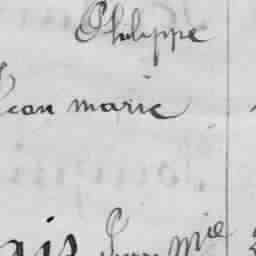 Philippe
Jean marie
ais Jean Mie